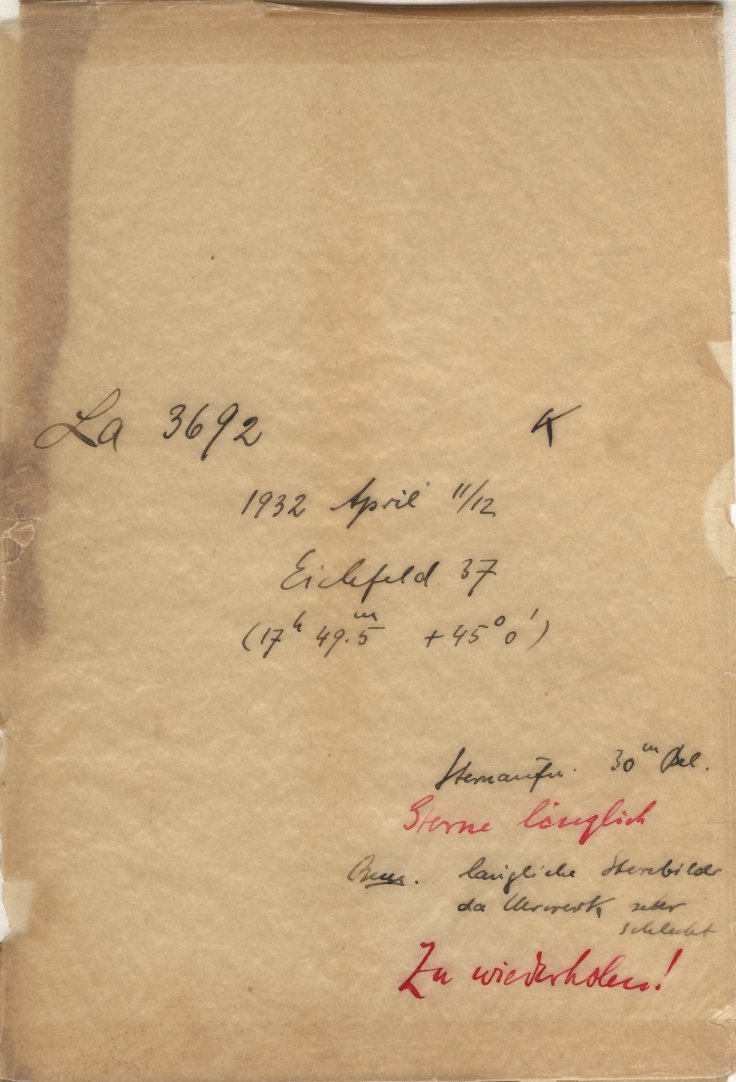 La 3692 K
1932 April 11/12
Eichfeld 37
(17h 49.5m +45° 0')
Sternaufn. 30m Bel.
Sterne länglich
Bem. längliche Sternbilder
da Uhrwerk sehr
schlecht
Zu wiederholen!